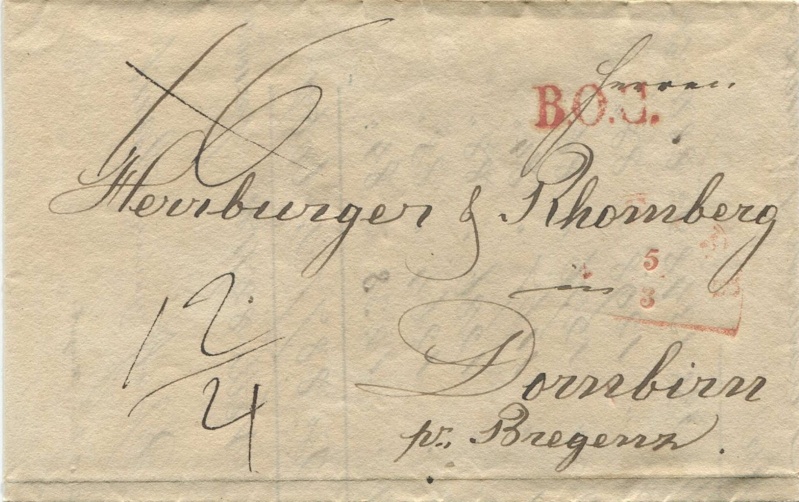 16
Herren
B.O.C.
Herrburger & Rhomberg
5
in
3
12
Dornbirn
4
pr. Bregenz.